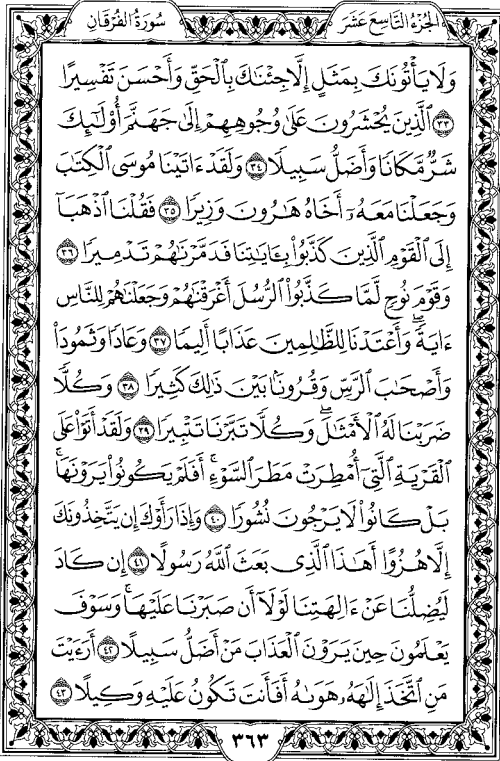 سُورَةُ الفُرْقَانِ
الجُزْءُ التَّاسِعَ عَشَرَ
وَلَا يَأْتُونَكَ بِمَثَلٍ إِلَّا جِئْنَٰكَ بِٱلْحَقِّ وَأَحْسَنَ تَفْسِيرًا
٣٣ ٱلَّذِينَ يُحْشَرُونَ عَلَىٰ وُجُوهِهِمْ إِلَىٰ جَهَنَّمَ أُو۟لَٰٓئِكَ
شَرٌّ مَّكَانًا وَأَضَلُّ سَبِيلًا ٣٤ وَلَقَدْ ءَاتَيْنَا مُوسَى ٱلْكِتَٰبَ
وَجَعَلْنَا مَعَهُۥٓ أَخَاهُ هَٰرُونَ وَزِيرًا ٣٥ فَقُلْنَا ٱذْهَبَآ
إِلَى ٱلْقَوْمِ ٱلَّذِينَ كَذَّبُوا۟ بِـَٔايَٰتِنَا فَدَمَّرْنَٰهُمْ تَدْمِيرًا ٣٦
وَقَوْمَ نُوحٍ لَّمَّا كَذَّبُوا۟ ٱلرُّسُلَ أَغْرَقْنَٰهُمْ وَجَعَلْنَٰهُمْ لِلنَّاسِ
ءَايَةً ۖ وَأَعْتَدْنَا لِلظَّٰلِمِينَ عَذَابًا أَلِيمًا ٣٧ وَعَادًا وَثَمُودَا۟
وَأَصْحَٰبَ ٱلرَّسِّ وَقُرُونًۢا بَيْنَ ذَٰلِكَ كَثِيرًا ٣٨ وَكُلًّا
ضَرَبْنَا لَهُ ٱلْأَمْثَٰلَ ۖ وَكُلًّا تَبَّرْنَا تَتْبِيرًا ٣٩ وَلَقَدْ أَتَوْا۟ عَلَى
ٱلْقَرْيَةِ ٱلَّتِىٓ أُمْطِرَتْ مَطَرَ ٱلسَّوْءِ ۚ أَفَلَمْ يَكُونُوا۟ يَرَوْنَهَا ۚ
بَلْ كَانُوا۟ لَا يَرْجُونَ نُشُورًا ٤٠ وَإِذَا رَأَوْكَ إِن يَتَّخِذُونَكَ
إِلَّا هُزُوًا أَهَٰذَا ٱلَّذِى بَعَثَ ٱللَّهُ رَسُولًا ٤١ إِن كَادَ
لَيُضِلُّنَا عَنْ ءَالِهَتِنَا لَوْلَآ أَن صَبَرْنَا عَلَيْهَا ۚ وَسَوْفَ
يَعْلَمُونَ حِينَ يَرَوْنَ ٱلْعَذَابَ مَنْ أَضَلُّ سَبِيلًا ٤٢ أَرَءَيْتَ
مَنِ ٱتَّخَذَ إِلَٰهَهُۥ هَوَىٰهُ أَفَأَنتَ تَكُونُ عَلَيْهِ وَكِيلًا ٤٣
٣٦٣